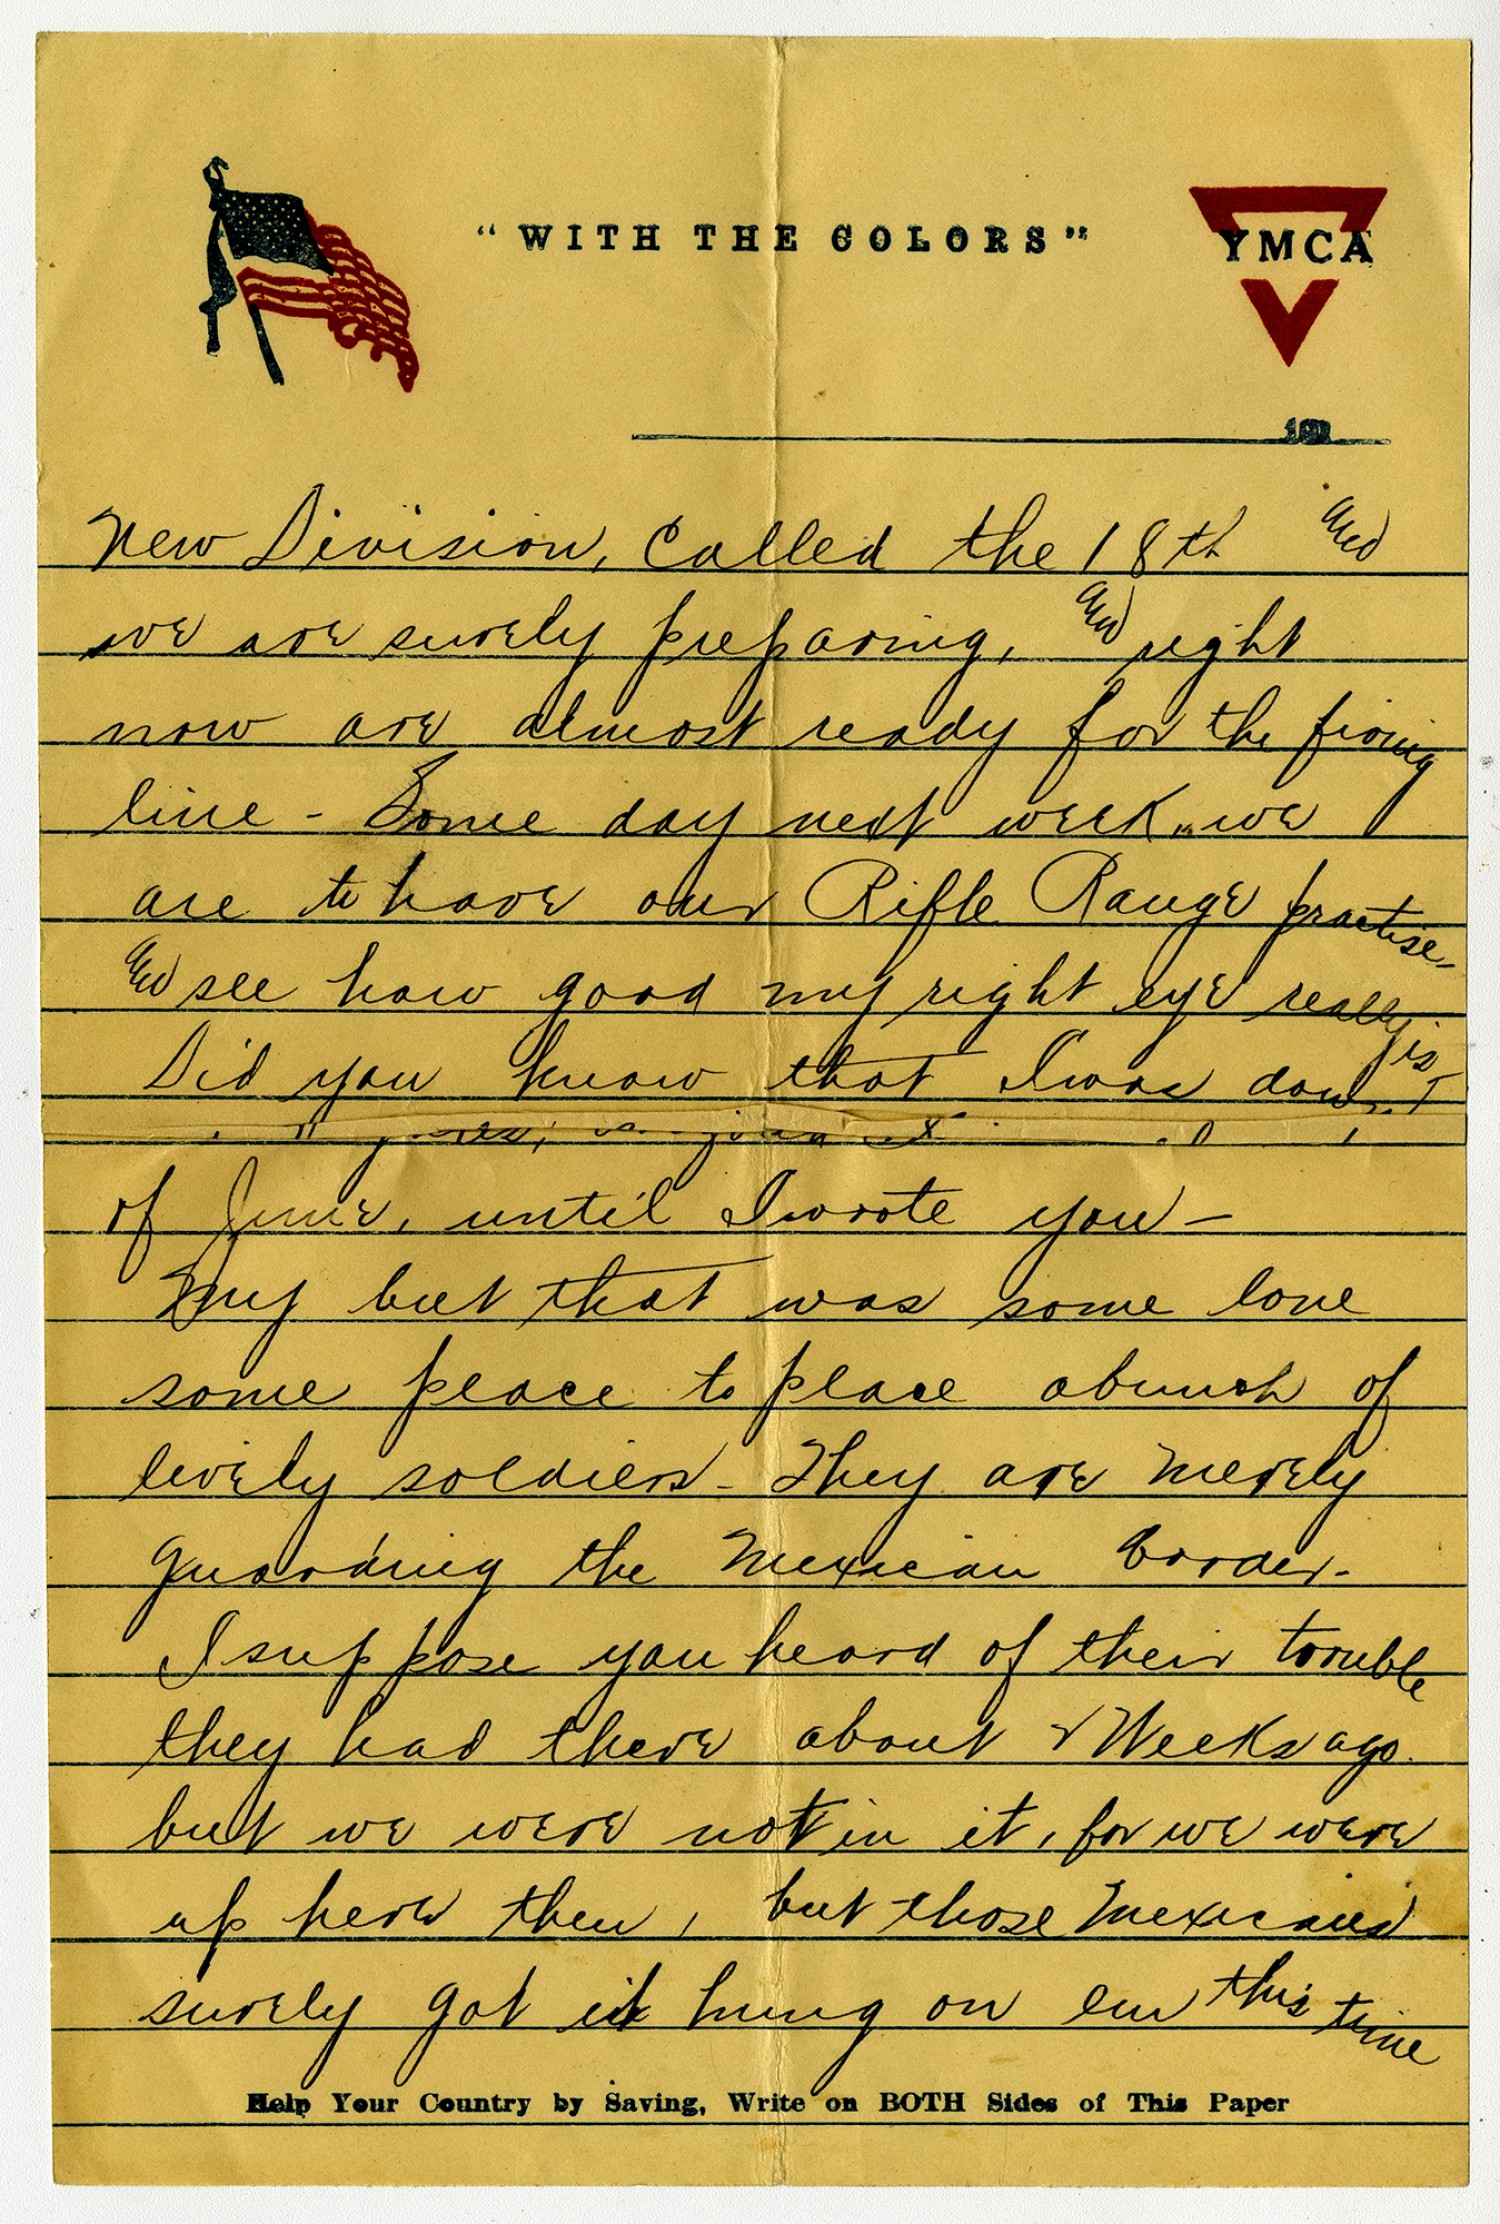 "WITH THE COLORS"
YMCA
New Division, Called the 18th and
we are surely preparing, and right
now are almost ready for the firing
line - Some day next week, we
are to have our Rifle Range practise-
and see how good my right eye really is
Did you know that I was down
of June, until I wrote you -
My but that was some lone
some place to place a bunch of
lively soldiers - They are merely
Guarding the Mexican border.
I suppose you heard of their trouble
they had there about 2 Weeks ago.
but we were not in it, for we were
up here then, but those Mexicans
surely got it hung on em this time
Help Your Country by Saving, Write on BOTH Sides of This Paper